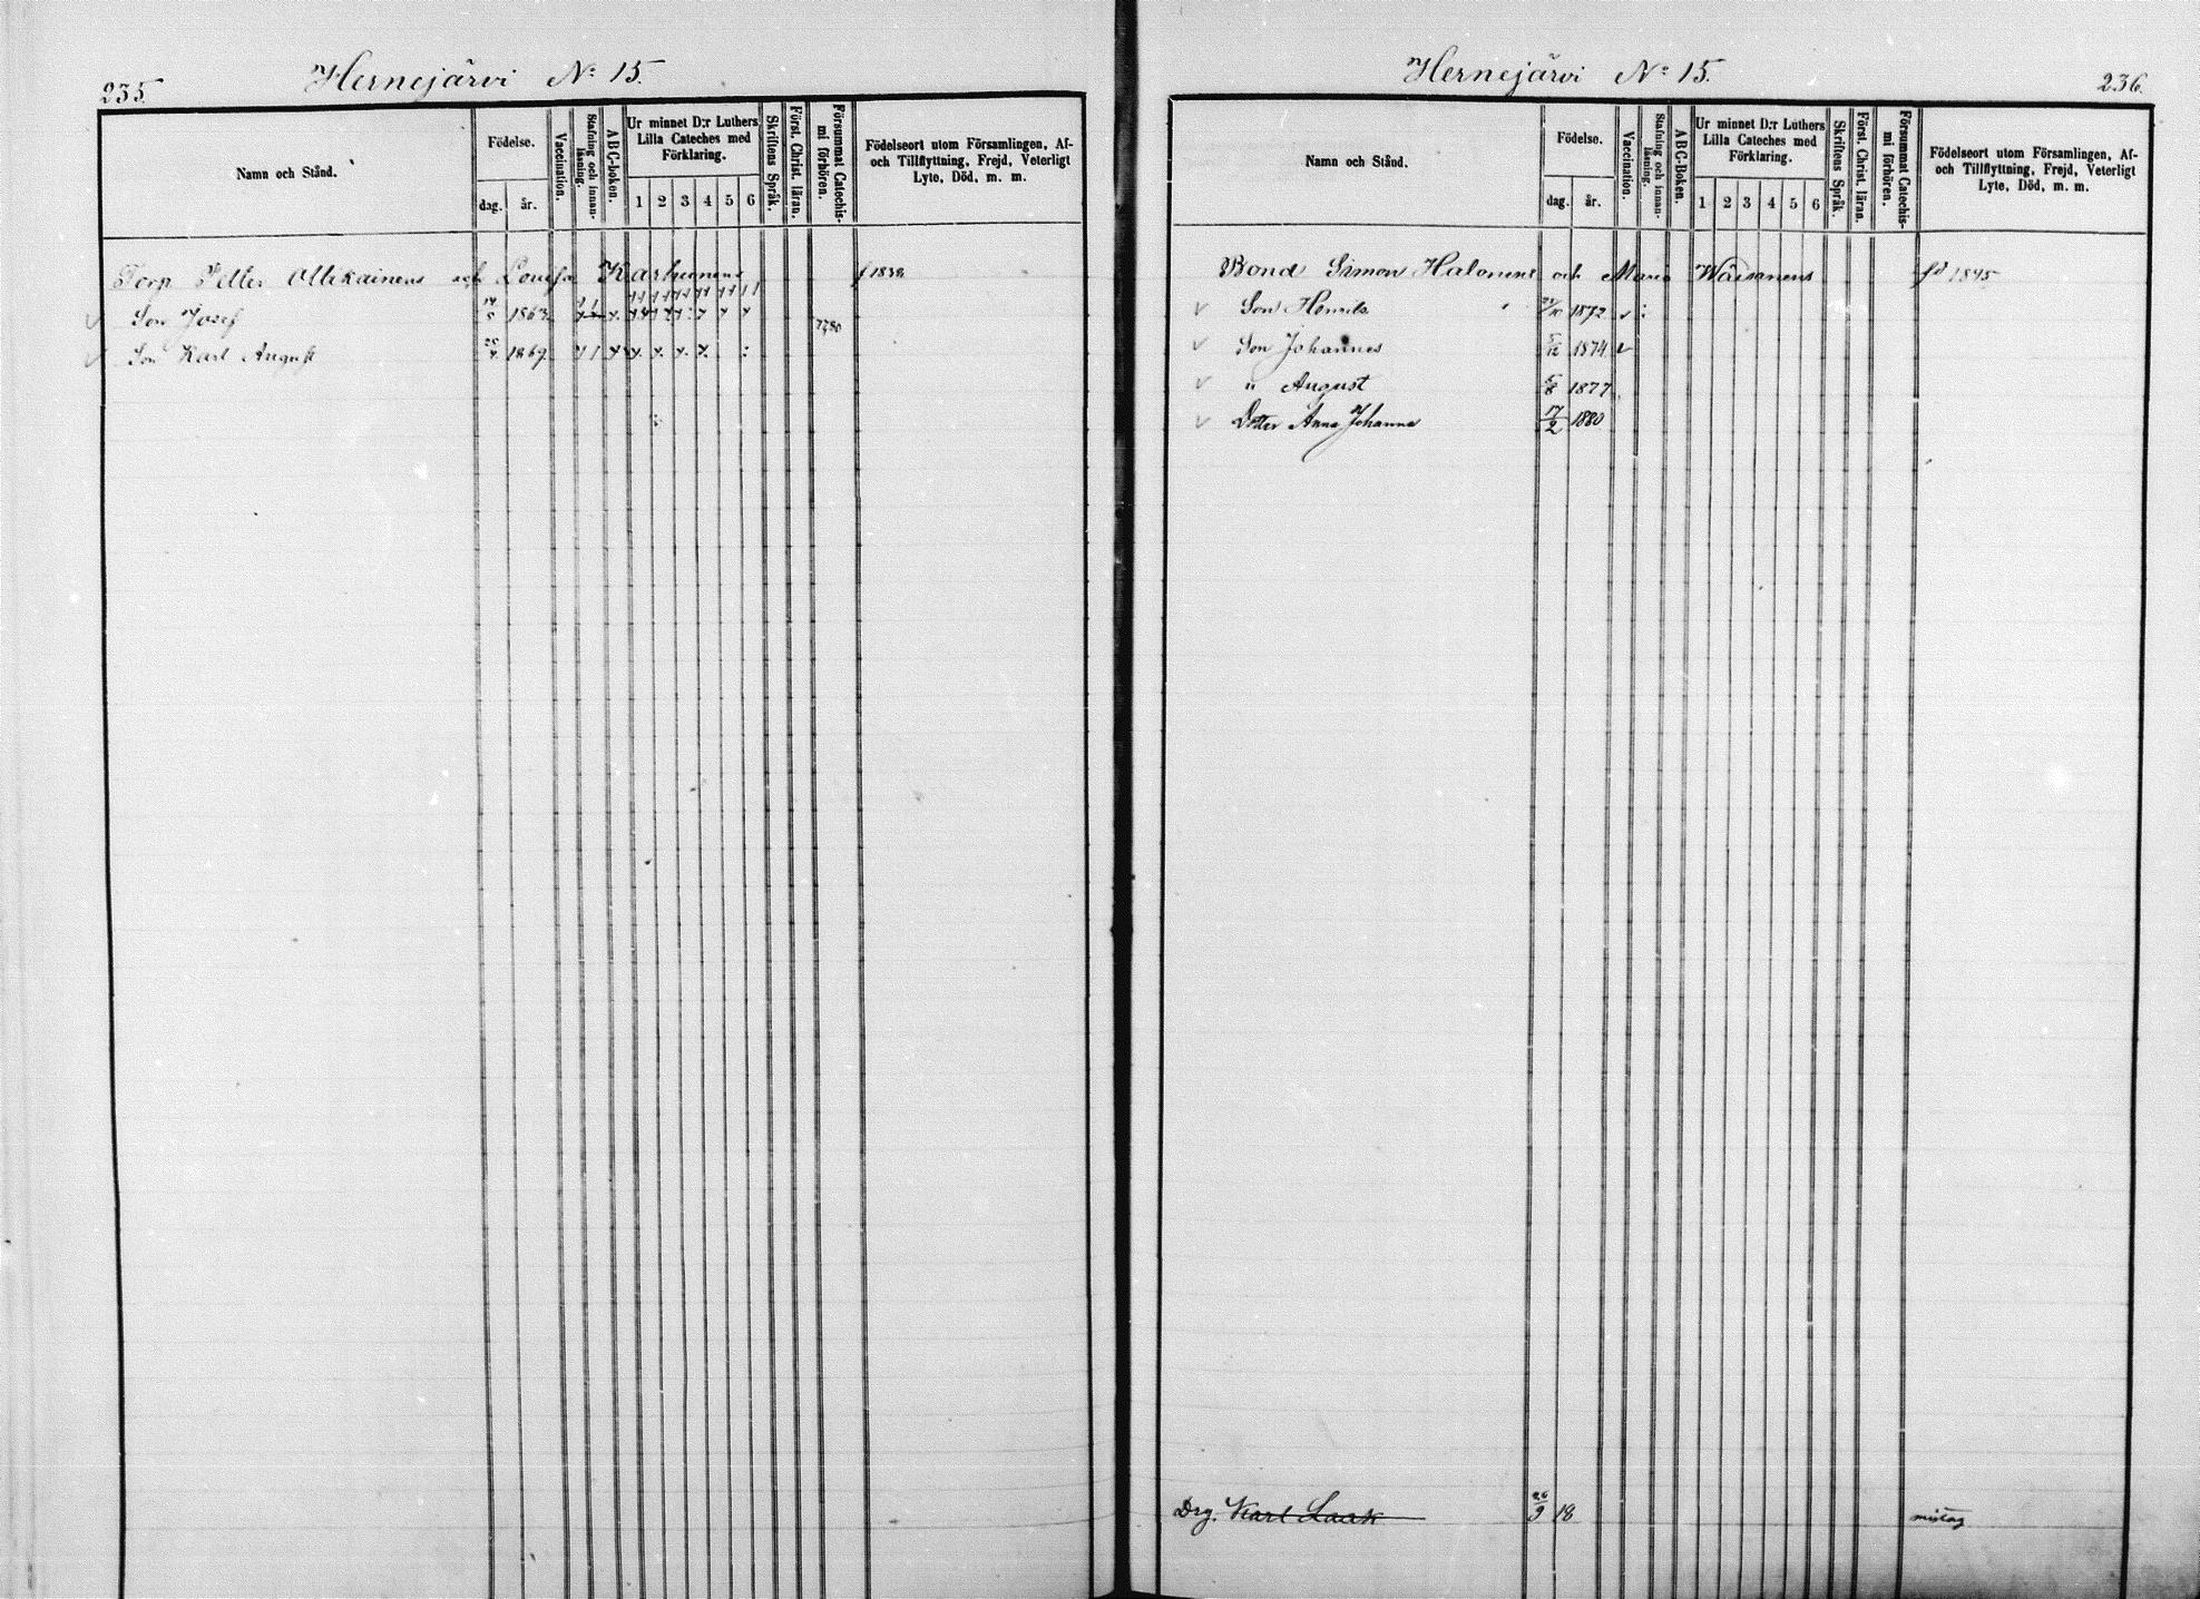 235.
Hernejärvi No 15.
Namn och Stånd.
Födelse.
dag.
år.
Vaccination.
Stafning och innan-
läsning.
ABC-boken.
Ur minnet D:r Luthers
Lilla Cateches med
Förklaring.
1 2 3 4 5 6
Skriftens Språk.
Först. Christ. läran.
Försummat Catechis-
mi förhören.
Födelseort utom Församlingen, Af-
och Tillflyttning, Frejd, Veterligt
Lyte, Död, m. m.
Torp Petter Ollikainens och Lovisa Karhunens
Son Josef 1863
Son Karl August 1869
Hernejärvi No 15.
236.
Namn och Stånd.
Födelse.
dag.
år.
Vaccination.
Stafning och innan-
läsning.
ABC-Boken.
Ur minnet D:r Luthers
Lilla Cateches med
Förklaring.
1 2 3 4 5 6
Skriftens Språk.
Först. Christ. läran.
Försummat Catechis-
mi förhören.
Födelseort utom Församlingen, Af-
och Tillflyttning, Frejd, Veterligt
Lyte, Död, m. m.
Bond Simon Halonens och Maria Wäisänens
Son Henrik 1872
Son Johannes 5/12 1874
" August 5/8 1877
Dotter Anna Johanna 17/2 1880
Drg. Karl Laak 26/9 18 mistag